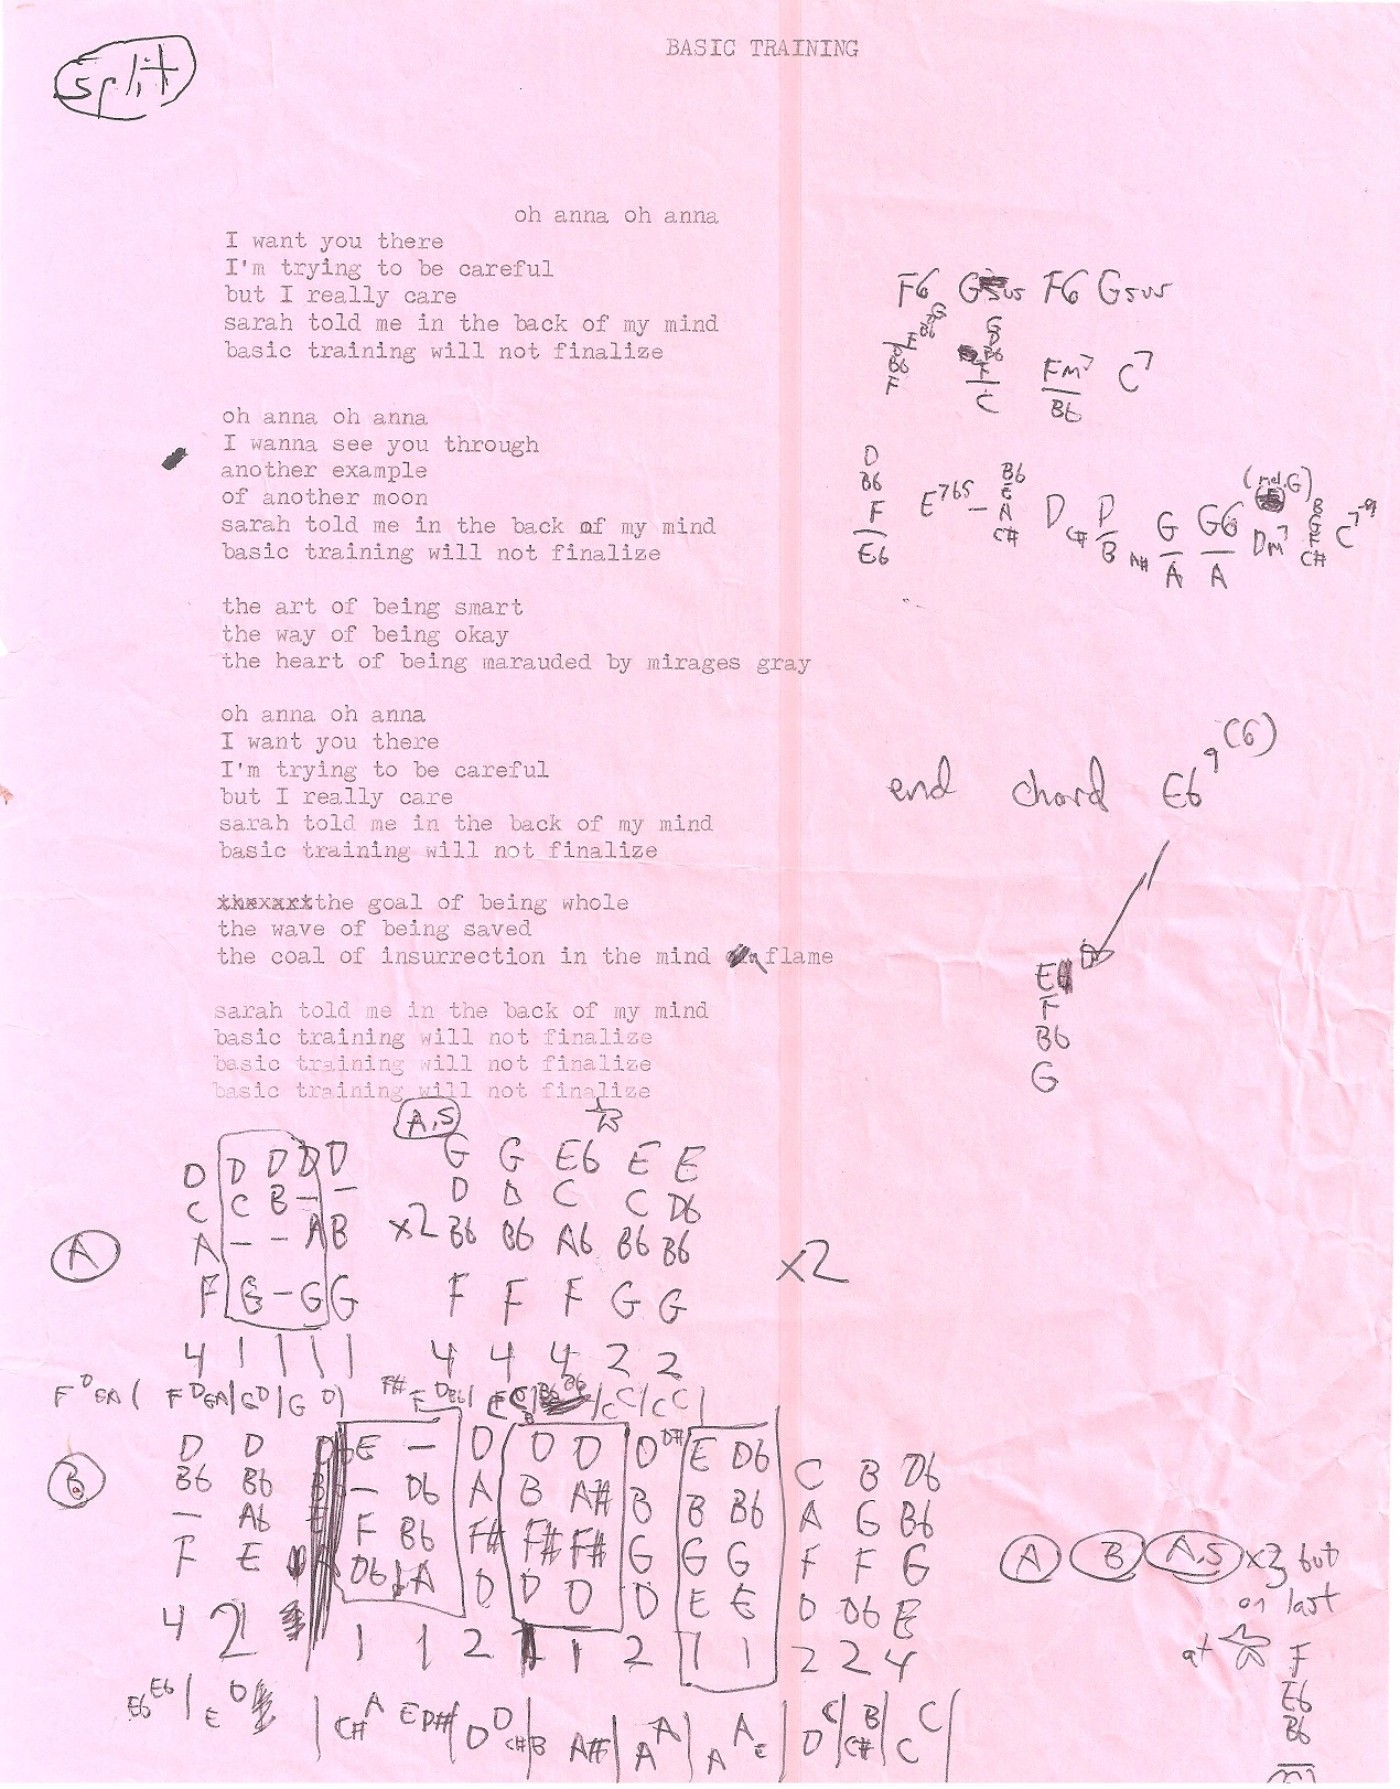 split
BASIC TRAINING
oh anna oh anna
I want you there
I'm trying to be careful
but I really care
sarah told me in the back of my mind
basic training will not finalize
oh anna oh anna
I wanna see you through
another example
of another moon
sarah told me in the back of my mind
basic training will not finalize
the art of being smart
the way of being okay
the heart of being marauded by mirages gray
oh anna oh anna
I want you there
I'm trying to be careful
but I really care
sarah told me in the back of my mind
basic training will not finalize
the goal of being whole
the wave of being saved
the coal of insurrection in the mind flame
sarah told me in the back of my mind
basic training will not finalize
basic training will not finalize
basic training will not finalize
F6 Gsus F6 Gsus
F
C
Fm7
Bb
C7
D
Bb
F
Eb
E7b5 -
Bb
E
A
C#
D C# D
B
A# G
A
G6
A
(mel. G)
Dm7
C#
C7-9
end chord Eb9(6)
E
F
Bb
G
A.5
D D D D D G G Eb E E
C C B - - D D C C Db
A A - - A B x2 Bb Bb Ab Bb Bb x2
F G - G G F F F G G
4 1 1 1 1 4 4 4 2 2
B
D D E - D D D D D# E Db C B Db
Bb Bb - Db A B A# B B Bb A G Bb
- Ab F Bb F# F# F# G G G F F G
F E Db A D D D D E E D Db E
4 2 1 1 2 1 1 2 1 1 2 2 4
Eb Eb | E D | C# A E D# | D D C# B A# | A A | A A E | D C | C# B | C C |
A B A.5 x3 but
on last
at F
Eb
Bb